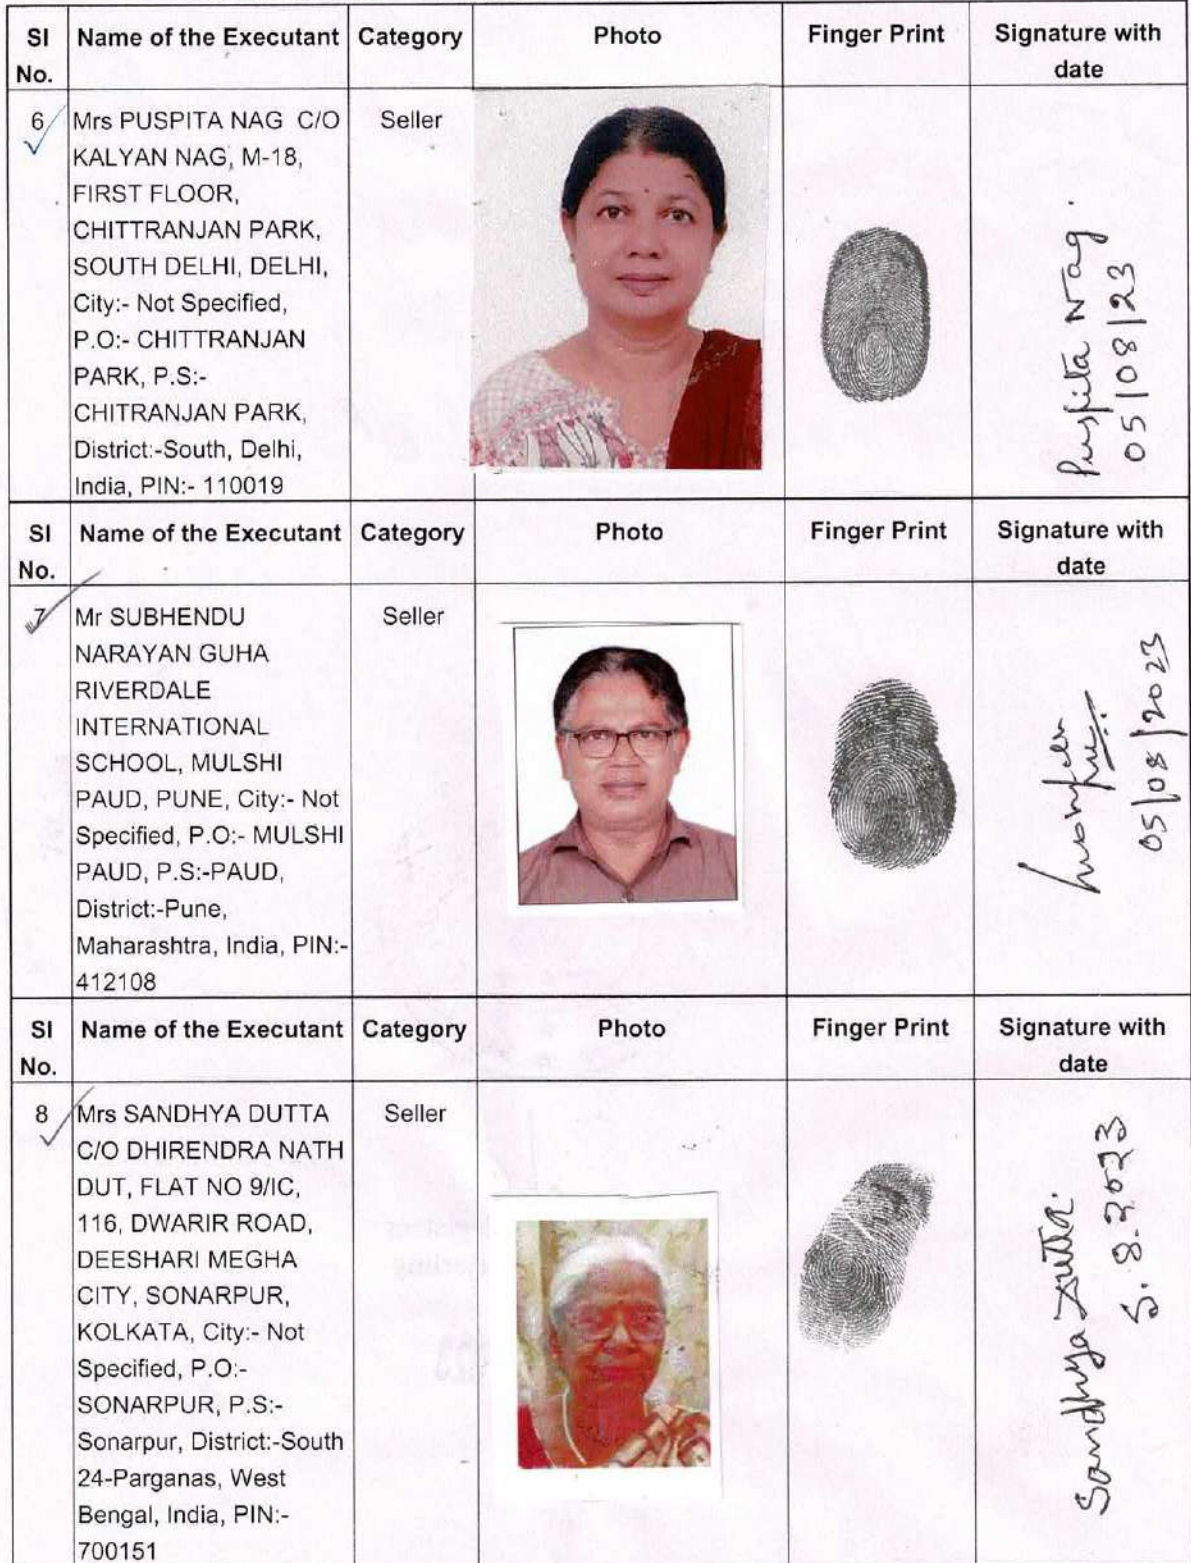 Sl No. Name of the Executant Category Photo Finger Print Signature with date
6 Mrs PUSPITA NAG C/O Seller
KALYAN NAG, M-18,
FIRST FLOOR,
CHITTRANJAN PARK,
SOUTH DELHI, DELHI,
City:- Not Specified,
P.O:- CHITTRANJAN
PARK, P.S:-
CHITRANJAN PARK,
District:-South, Delhi,
India, PIN:- 110019
Puspita Nag
05/08/23
Sl No. Name of the Executant Category Photo Finger Print Signature with date
7 Mr SUBHENDU Seller
NARAYAN GUHA
RIVERDALE
INTERNATIONAL
SCHOOL, MULSHI
PAUD, PUNE, City:- Not
Specified, P.O:- MULSHI
PAUD, P.S:-PAUD,
District:-Pune,
Maharashtra, India, PIN:-
412108
05/08/2023
Sl No. Name of the Executant Category Photo Finger Print Signature with date
8 Mrs SANDHYA DUTTA Seller
C/O DHIRENDRA NATH
DUT, FLAT NO 9/IC,
116, DWARIR ROAD,
DEESHARI MEGHA
CITY, SONARPUR,
KOLKATA, City:- Not
Specified, P.O:-
SONARPUR, P.S:-
Sonarpur, District:-South
24-Parganas, West
Bengal, India, PIN:-
700151
Sandhya Dutta
5.8.2023